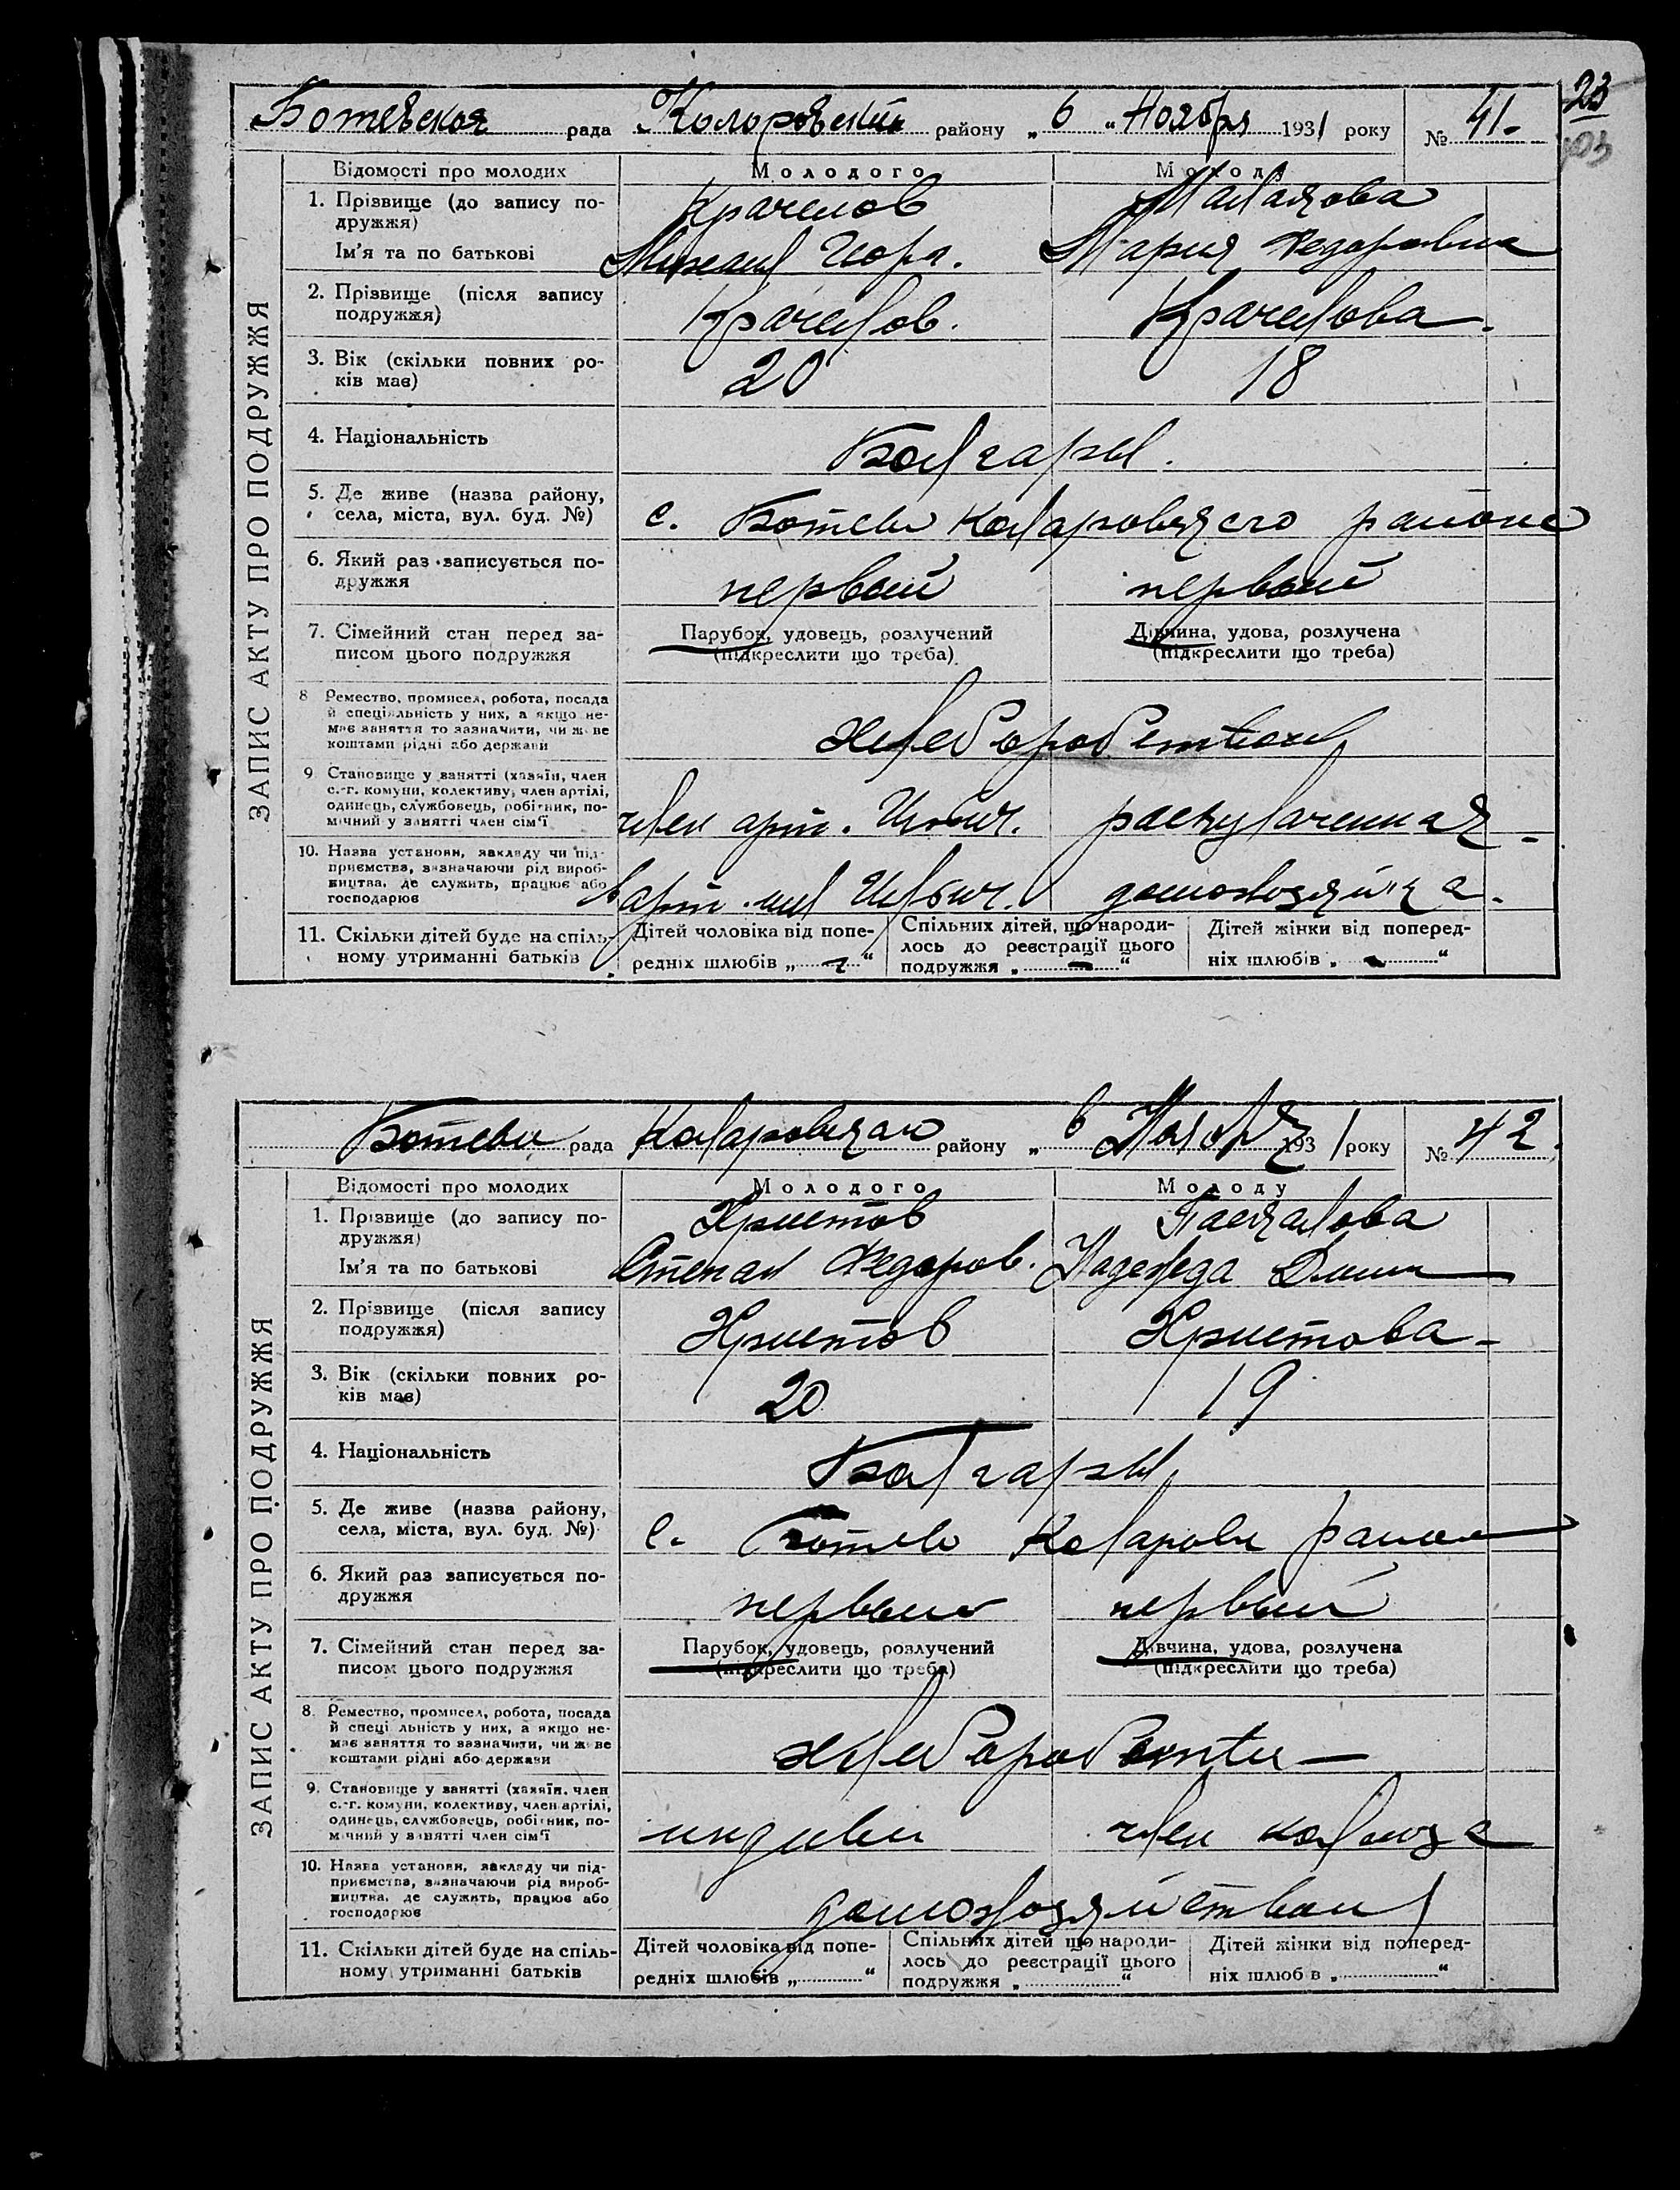 Ботевская рада Коларовский району „6" Ноября 1931 року № 41.
23
ЗАПИС АКТУ ПРО ПОДРУЖЖЯ
Відомості про молодих Молодого Молоду
1. Прізвище (до запису по-
дружжя)
Крачилов
Ім'я та по батькові
Михаил Геор. Мария Федоровна
2. Прізвище (після запису
подружжя)
Крачилов. Крачилова
3. Вік (скільки повних ро-
ків має)
20 18
4. Національність
Болгары.
5. Де живе (назва району,
села, міста, вул. буд. №)
с. Ботево Коларовского района
6. Який раз записується по-
дружжя
первый первый
7. Сімейний стан перед за-
писом цього подружжя
Парубок, удовець, розлучений
(підкреслити що треба)
Дівчина, удова, розлучена
(підкреслити що треба)
8 Ремество, промисел, робота, посада
й спеціяльність у них, а якщо не-
має заняття то зазначити, чиж ве
коштами рідні або держави
хлебороб
9 Становище у занятті (хазяїн, член
с.-г. комуни, колективу, член артілі,
одинець, службовець, робітник, по-
мічний у занятті член сім'ї
член арт. Ильич. раскулаченная
10. Назва установи, закладу чи під-
приємства, зазначаючи рід вироб-
ництва, де служить, працює або
господарює
в арт. им Ильич. домохозяйка.
11. Скільки дітей буде на спіль-
ному утриманні батьків
Дітей чоловіка від попе-
редніх шлюбів „ - "
Спільних дітей, що народи-
лось до реєстрації цього
подружжя „ - "
Дітей жінки від поперед-
ніх шлюбів „ - "
Ботеви рада району „ 6 Ноября 1931 року № 42.
ЗАПИС АКТУ ПРО ПОДРУЖЖЯ
Відомості про молодих Молодого Молоду
1. Прізвище (до запису по-
дружжя)
Христов Паскалова
Ім'я та по батькові
Степан Федоров. Надежда
2. Прізвище (після запису
подружжя)
Христов Христова
3. Вік (скільки повних ро-
ків має)
20 19
4. Національність
Болгары
5. Де живе (назва району,
села, міста, вул. буд. №)
с. Ботево Коларовск район
6. Який раз записується по-
дружжя
первый первый
7. Сімейний стан перед за-
писом цього подружжя
Парубок, удовець, розлучений
(підкреслити що треба)
Дівчина, удова, розлучена
(підкреслити що треба)
8. Ремество, промисел, робота, посада
й спеці льність у них, а якщо не-
має заняття то зазначити, чиж ве
коштами рідні або держави
хлебороб
9. Становище у занятті (хазяїн, член
с.-г. комуни, колективу, член артілі,
одинець, службовець, робітник, по-
мічний у занятті член сім'ї
индиви член колхоза
10. Назва установи, закладу чи під-
приємства, зазначаючи рід вироб-
ництва, де служить, працює або
господарює
11. Скільки дітей буде на спіль-
ному утриманні батьків
Дітей чоловіка від попе-
редніх шлюбів „ "
Спільних дітей що народи-
лось до реєстрації цього
подружжя „ "
Дітей жінки від поперед-
ніх шлюб в „ "